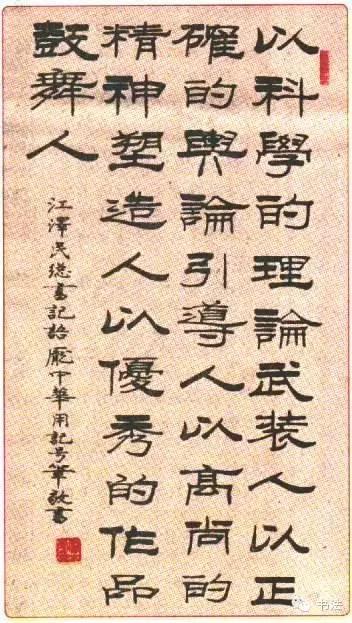 以科學的理論武装人以正
確的輿論引導人以高尚的
精神塑造人以優秀的作品
鼓舞人
江澤民總書記語龐中華用記号筆敬書
书法